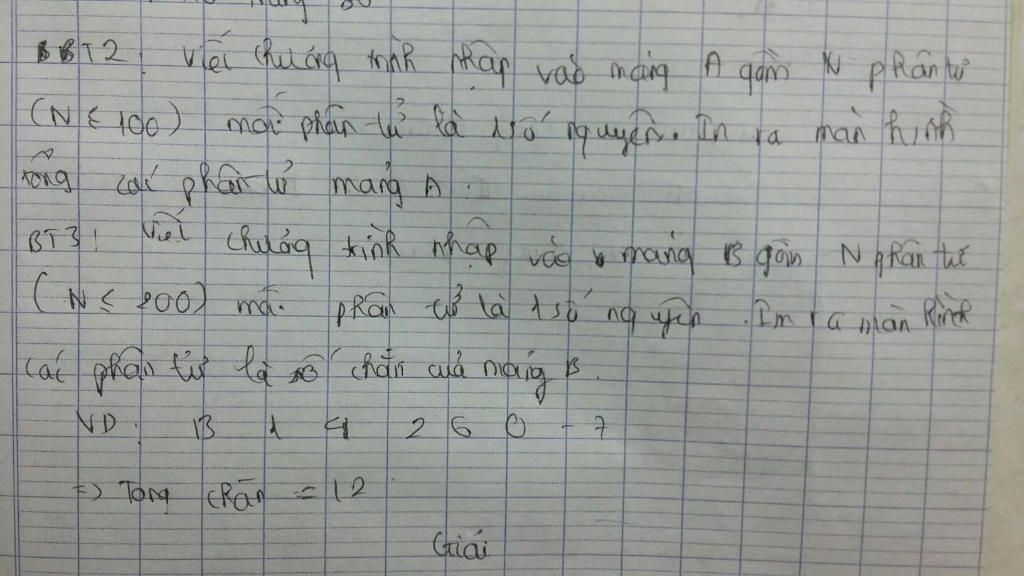 BT2: Viết chương trình nhập vào mảng A gồm N phần tử
(N ≤ 100) mỗi phần tử là 1 số nguyên. In ra màn hình
tổng các phần tử mảng A.
BT3: Viết chương trình nhập vào mảng B gồm N phần tử
(N ≤ 200) mỗi phần tử là 1 số nguyên. In ra màn hình
các phần tử là số chẵn của mảng B.
VD: B 1 4 2 6 0 -7
=> Tổng chẵn = 12
Giải